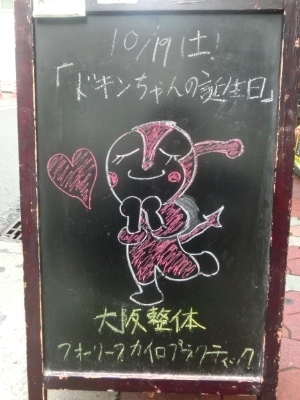 10/19(土)
「ドキンちゃんの誕生日」
大阪整体
フォーリーフカイロプラクティック